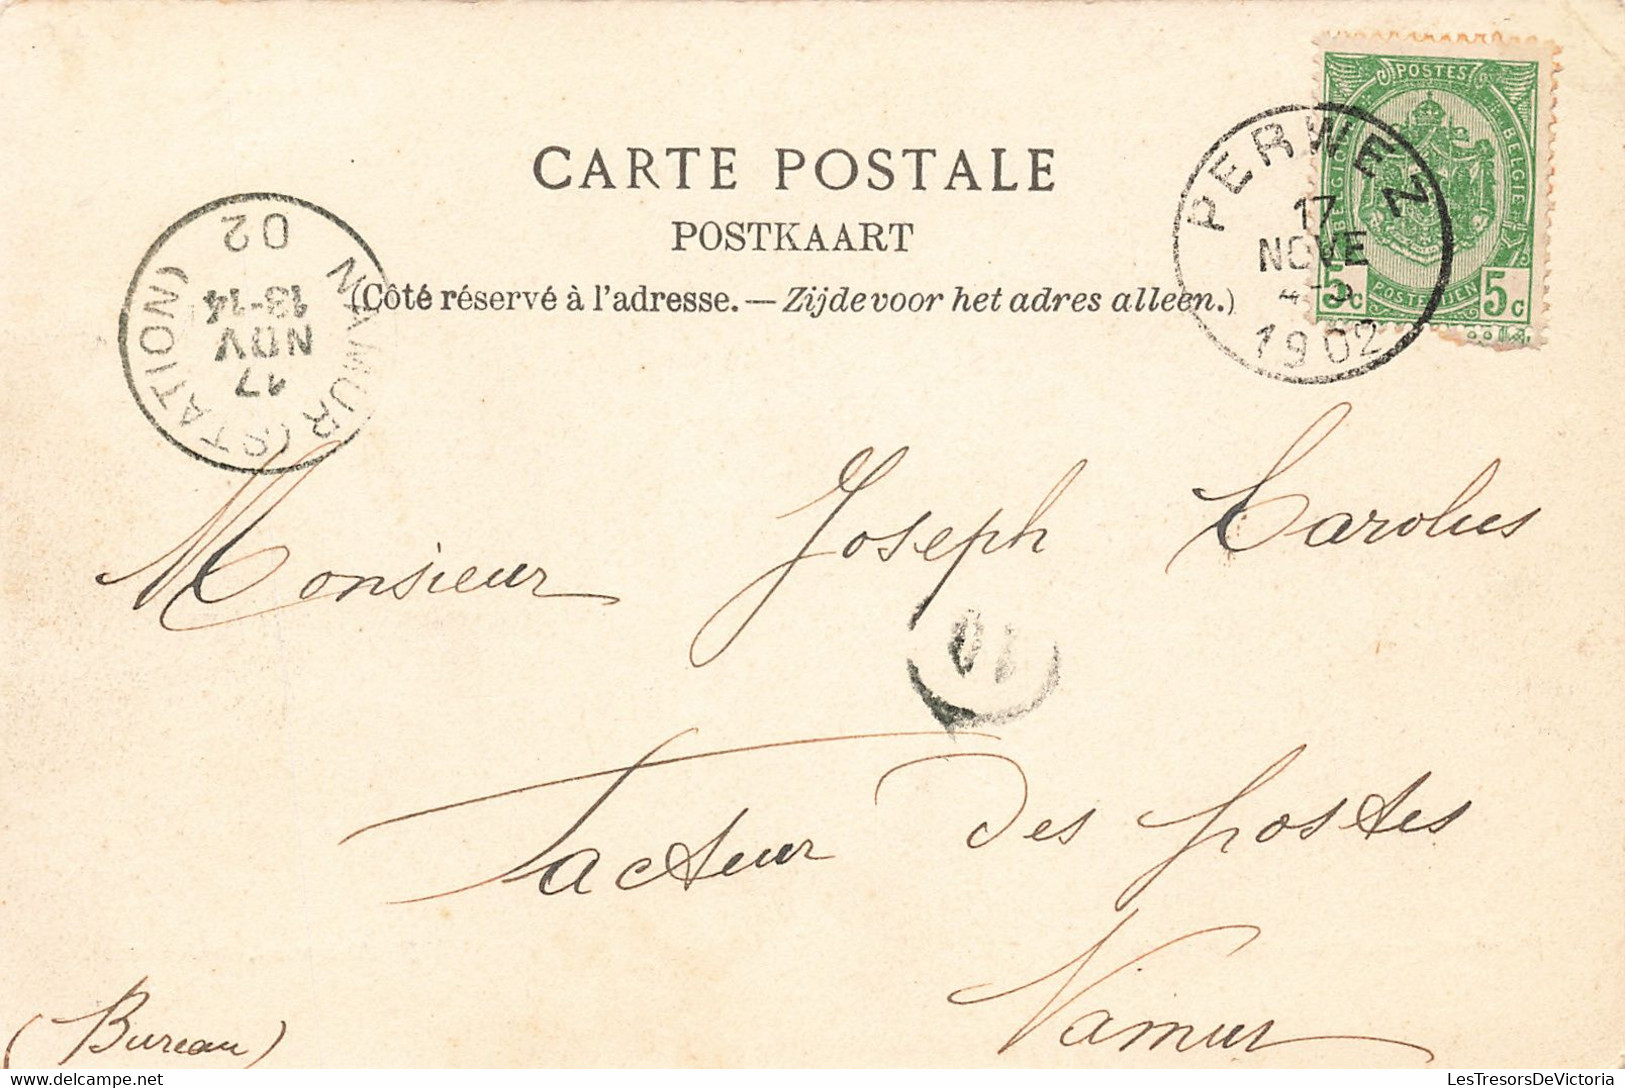 POSTES
BELGIQUE
BELGIE
5c POSTERIJEN 5c
PERWEZ
17
NOVE
1902
CARTE POSTALE
POSTKAART
(Côté réservé à l'adresse. — Zijde voor het adres alleen.)
NAMUR (STATION)
17
NOV
13-14
02
Monsieur Joseph Carolus
10
Facteur des postes
Namur
(Bureau)
LesTresorsDeVictoria